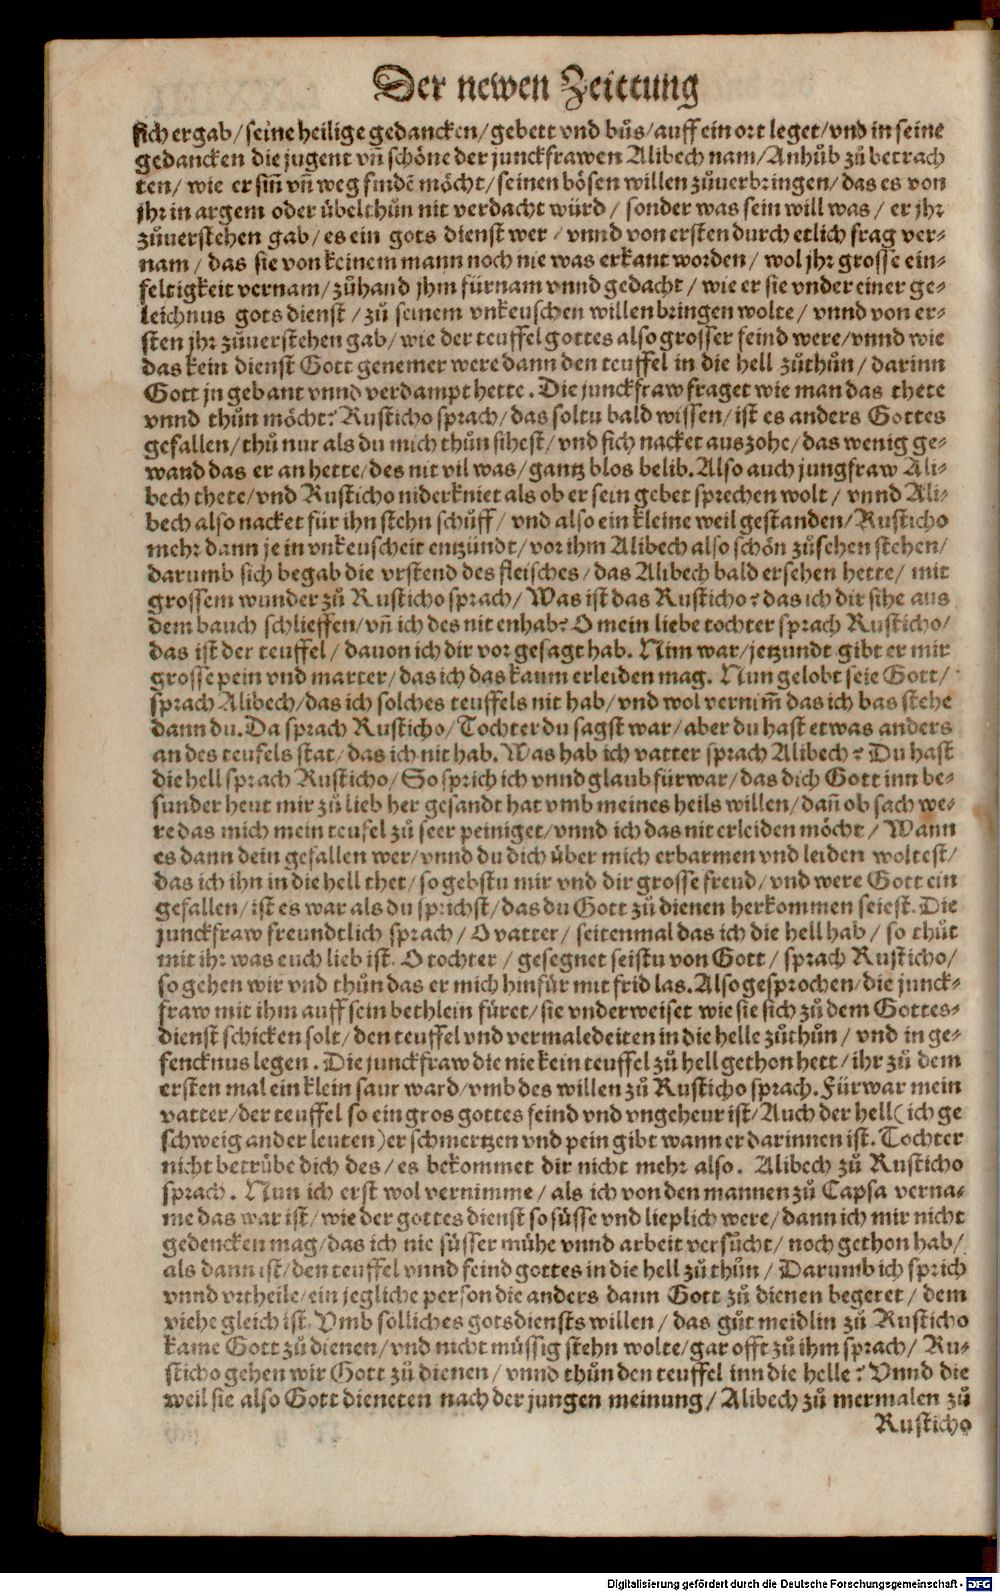 Der newen Zeittung
sich ergab/ seine heilige gedancken/ gebett vnd bůs/ auff ein ort leget/ vnd in seine
gedancken die jugent vñ schöne der junckfrawen Alibech nam/ Anhůb zů betrach
ten/ wie er siñ vñ weg findẽ möcht/ seinen bösen willen zůuerbringen/ das es von
jhr in argem oder übelthůn nit verdacht würd/ sonder was sein will was/ er jhr
zůuerstehen gab/ es ein gots dienst wer/ vnnd von ersten durch etlich frag ver-
nam/ das sie von keinem mann noch nie was erkant worden/ wol jhr grosse ein-
feltigkeit vernam/ zůhand jhm fürnam vnnd gedacht/ wie er sie vnder einer ge-
leichnus gots dienst/ zů seinem vnkeuschen willen bringen wolte/ vnnd von er-
sten jhr zůuerstehen gab/ wie der teuffel gottes also grosser feind were/ vnnd wie
das kein dienst Gott genemer were dann den teuffel in die hell zůthůn/ darinn
Gott jn gebant vnnd verdampt hette. Die junckfraw fraget wie man das thete
vnnd thůn möcht? Rusticho sprach/ das soltu bald wissen/ ist es anders Gottes
gefallen/ thů nur als du mich thůn sihest/ vnd sich nacket auszohe/ das wenig ge-
wand das er an hette/ des nit vil was/ gantz blos belib. Also auch jungfraw Ali-
bech thete/ vnd Rusticho niderkniet als ob er sein gebet sprechen wolt/ vnnd Ali-
bech also nacket für ihn stehn schůff/ vnd also ein kleine weil gestanden/ Rusticho
mehr dann je in vnkeuscheit entzündt/ vor ihm Alibech also schön zůsehen stehen/
darumb sich begab die vrstend des fleisches/ das Alibech bald ersehen hette/ mit
grossem wunder zů Rusticho sprach/ Was ist das Rusticho? das ich dir sihe aus
dem bauch schlieffen/ vñ ich des nit enhab? O mein liebe tochter sprach Rusticho/
das ist der teuffel/ dauon ich dir vor gesagt hab. Nim war/ jetzundt gibt er mir
grosse pein vnd marter/ das ich das kaum erleiden mag. Nun gelobt seie Gott/
sprach Alibech/ das ich solches teuffels nit hab/ vnd wol vernim̃ das ich bas stehe
dann du. Da sprach Rusticho/ Tochter du sagst war/ aber du hast etwas anders
an des teufels stat/ das ich nit hab. Was hab ich vatter sprach Alibech? Du hast
die hell sprach Rusticho/ So sprich ich vnnd glaub fürwar/ das dich Gott inn be-
sunder heut mir zů lieb her gesandt hat vmb meines heils willen/ dañ ob sach we-
re das mich mein teufel zů seer peiniget/ vnnd ich das nit erleiden möcht/ Wann
es dann dein gefallen wer/ vnnd du dich über mich erbarmen vnd leiden woltest/
das ich ihn in die hell thet/ so gebstu mir vnd dir grosse freud/ vnd were Gott ein
gefallen/ ist es war als du sprichst/ das du Gott zů dienen herkommen seiest. Die
junckfraw freundtlich sprach/ O vatter/ seitenmal das ich die hell hab/ so thůt
mit ihr was euch lieb ist. O tochter/ gesegnet seistu von Gott/ sprach Rusticho/
so gehen wir vnd thůn das er mich hinfür mit frid las. Also gesprochen/ die junck-
fraw mit ihm auff sein bethlein füret/ sie vnderweiset wie sie sich zů dem Gottes-
dienst schicken solt/ den teuffel vnd vermaledeiten in die helle zůthůn/ vnd in ge-
fencknus legen. Die junckfraw die nie kein teuffel zů hell gethon hett/ ihr zů dem
ersten mal ein klein saur ward/ vmb des willen zů Rusticho sprach. Fürwar mein
vatter/ der teuffel so ein gros gottes feind vnd vngeheur ist/ Auch der hell (ich ge
schweig ander leuten) er schmertzen vnd pein gibt wann er darinnen ist. Tochter
nicht betrübe dich des/ es bekommet dir nicht mehr also. Alibech zů Rusticho
sprach. Nun ich erst wol vernimme/ als ich von den mannen zů Capsa verna-
me das war ist/ wie der gottes dienst so süsse vnd lieplich were/ dann ich mir nicht
gedencken mag/ das ich nie süsser mühe vnnd arbeit versůcht/ noch gethon hab/
als dann ist/ den teuffel vnnd feind gottes in die hell zů thůn/ Darumb ich sprich
vnnd vrtheile/ ein jegliche person die anders dann Gott zů dienen begeret/ dem
viehe gleich ist. Vmb solliches gotsdiensts willen/ das gůt meidlin zů Rusticho
kame Gott zů dienen/ vnd nicht müssig stehn wolte/ gar offt zů ihm sprach/ Ru-
sticho gehen wir Gott zů dienen/ vnnd thůn den teuffel inn die helle? Vnnd die
weil sie also Gott dieneten nach der jungen meinung/ Alibech zů mermalen zů
Rusticho
Digitalisierung gefördert durch die Deutsche Forschungsgemeinschaft - DFG